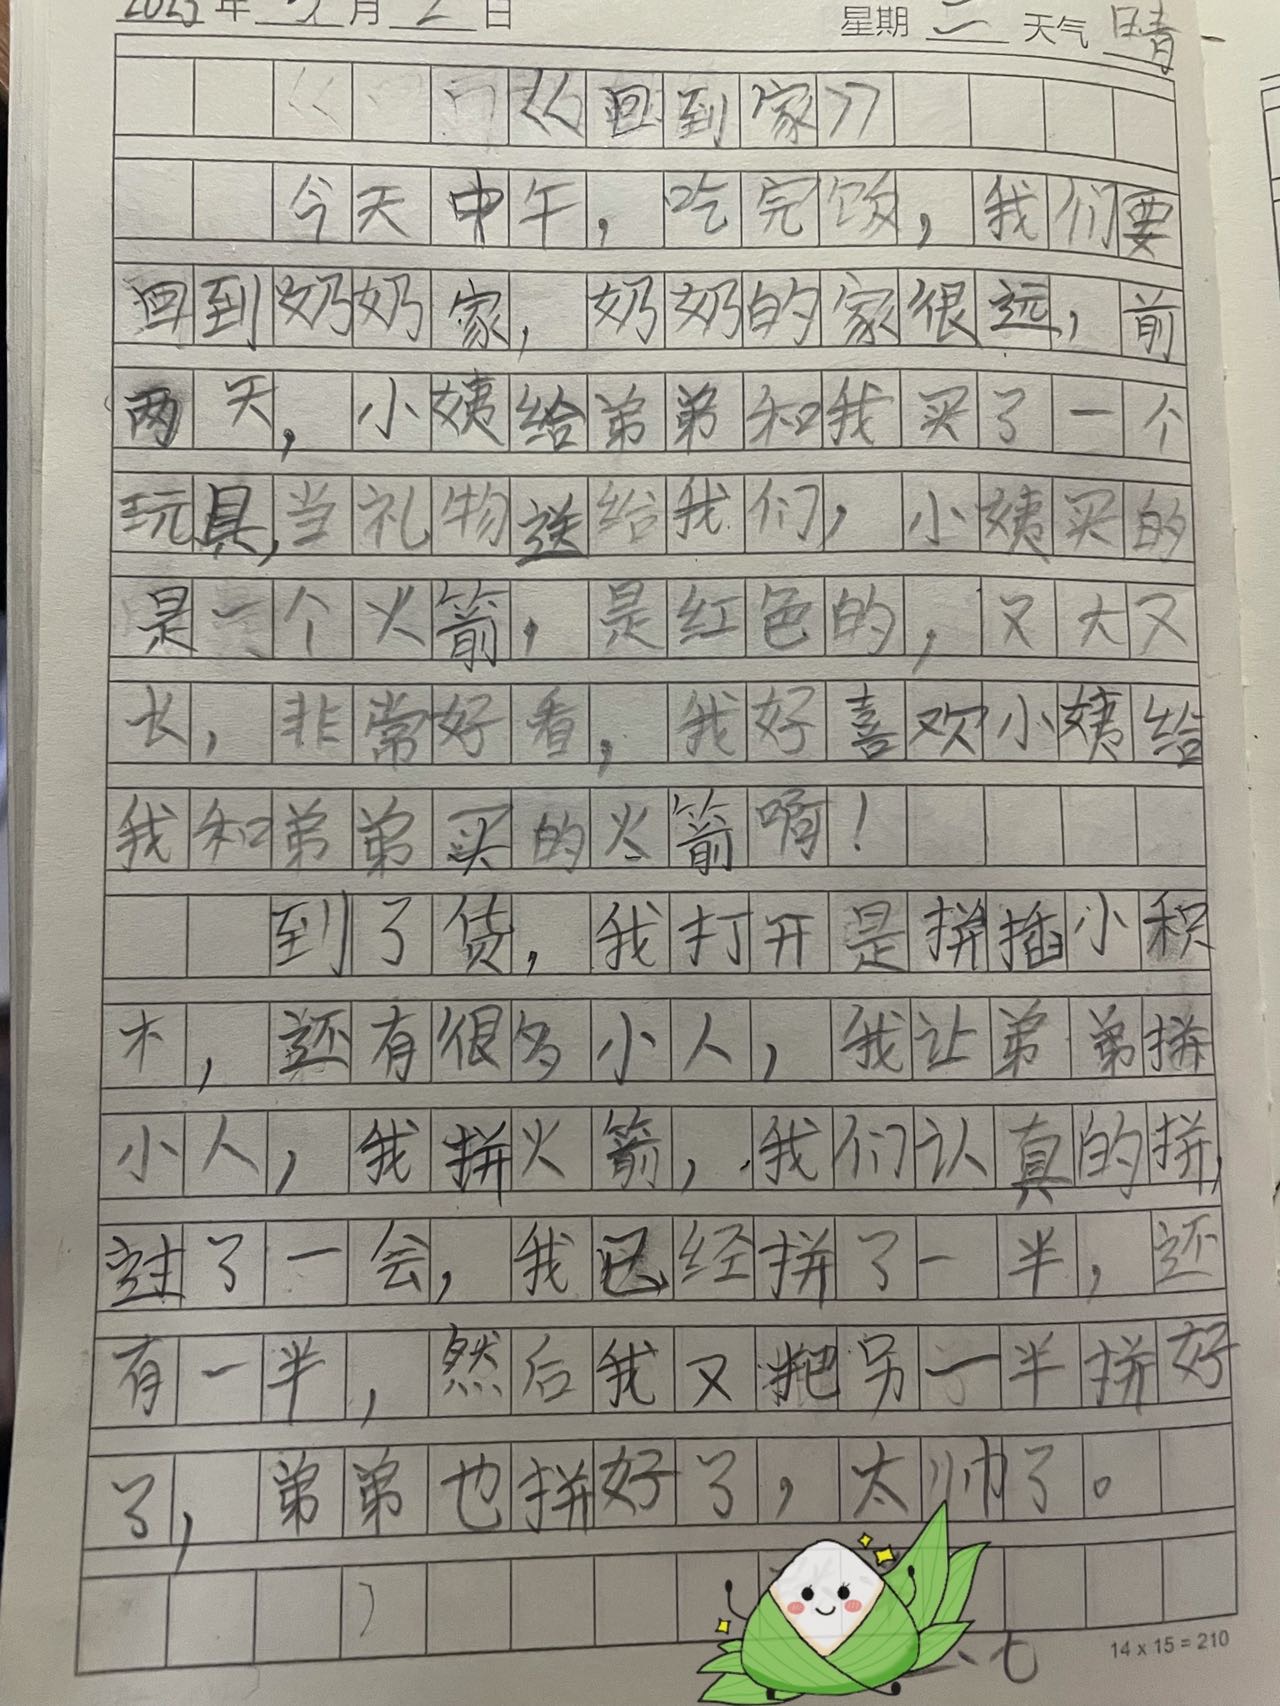 年 月 2 日 星期 二 天气 晴
《回到家》
今天中午，吃完饭，我们要
回到奶奶家，奶奶的家很远，前
两天，小姨给弟弟和我买了一个
玩具，当礼物送给我们，小姨买的
是一个火箭，是红色的，又大又
长，非常好看，我好喜欢小姨给
我和弟弟买的火箭啊！
到了货，我打开是拼插小积
木，还有很多小人，我让弟弟拼
小人，我拼火箭，我们认真的拼，
过了一会，我已经拼了一半，还
有一半，然后我又把另一半拼好
了，弟弟也拼好了，太帅了。
14 x 15 = 210